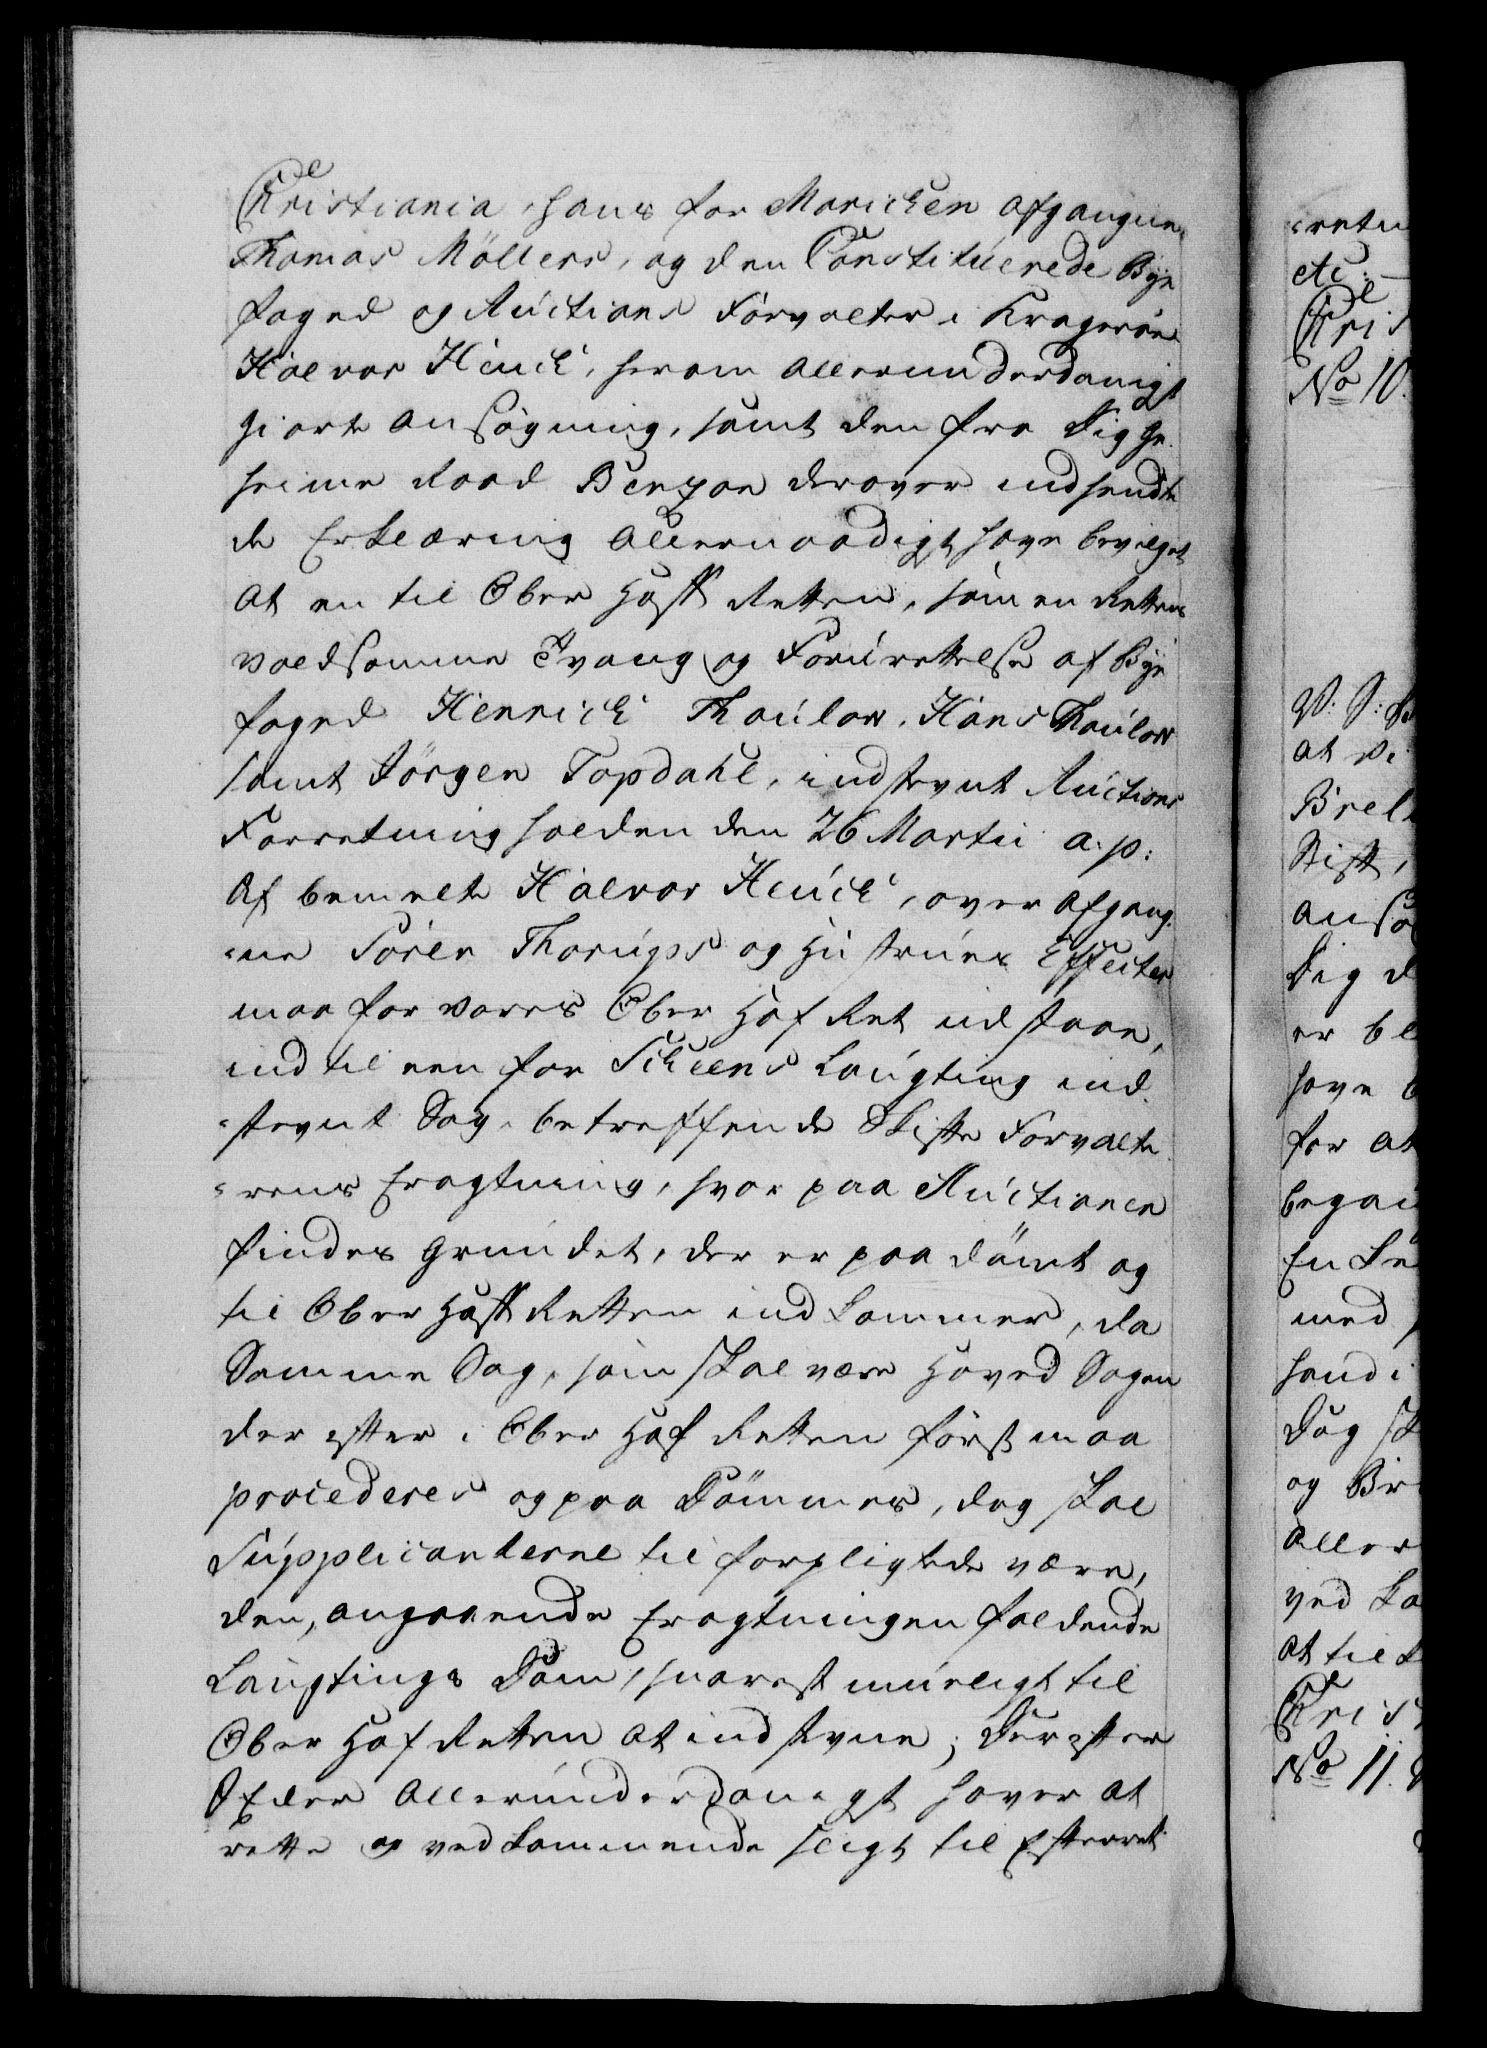 Christiania, paa for Marichen afgangne
Thomas Möllers, og den Constituerede Bye
foged og Auctions Forvalter i Kragerøe
Halvor Heuch, herom allerunderdanigst
giorte Ansøgning, samt den fra Dig Ge-
heime Raad Benzon derover indsendte
de Erklæring allernaadigst have bevilget
at en til Ober Hoff Retten, som en Rettens
voldsomme Tvang og Forurettelse af Bye
foged Henrich Thaulow, Hans Thaulow
samt Jörgen Topdahl, indstevnt Auctions
Forretning holden den 26 Martii a. p:
af bemelte Halvor Heuch, over afgang-
ne Sören Thorups og Hustrues Effecter
maa for vores Ober Hof Ret udstaae,
indtil een for Scheens Laugting ind-
stevnt Sag, betreffende Skifte Forvalte
rens Eragtning, hvor paa Auctionen
findes grundet, der er paadömt og
til Ober Hoff Retten indkommer, da
Samme Sag, som skal være Hoved Sagen
der efter i Ober Hof Retten först maa
procederes og paa Dömmes, dog skal
Supplicanterne til forpligtede være,
den, angaaende Eragtningen faldende
Laugtings Dom, snarest mueligt til
Ober Hof Retten at indstevne; Derefter
I Eder allerunderdanigst haver at
rette og vedkommende sligt til Efterret-
retn
etc: -
Chris
No 10.
at Vi
Stift,
Anso
Dig d
er bl
have b
for at
begai
med
Dog sk
og Br
Aller
ved Ko
at til k
Chris
No 11.